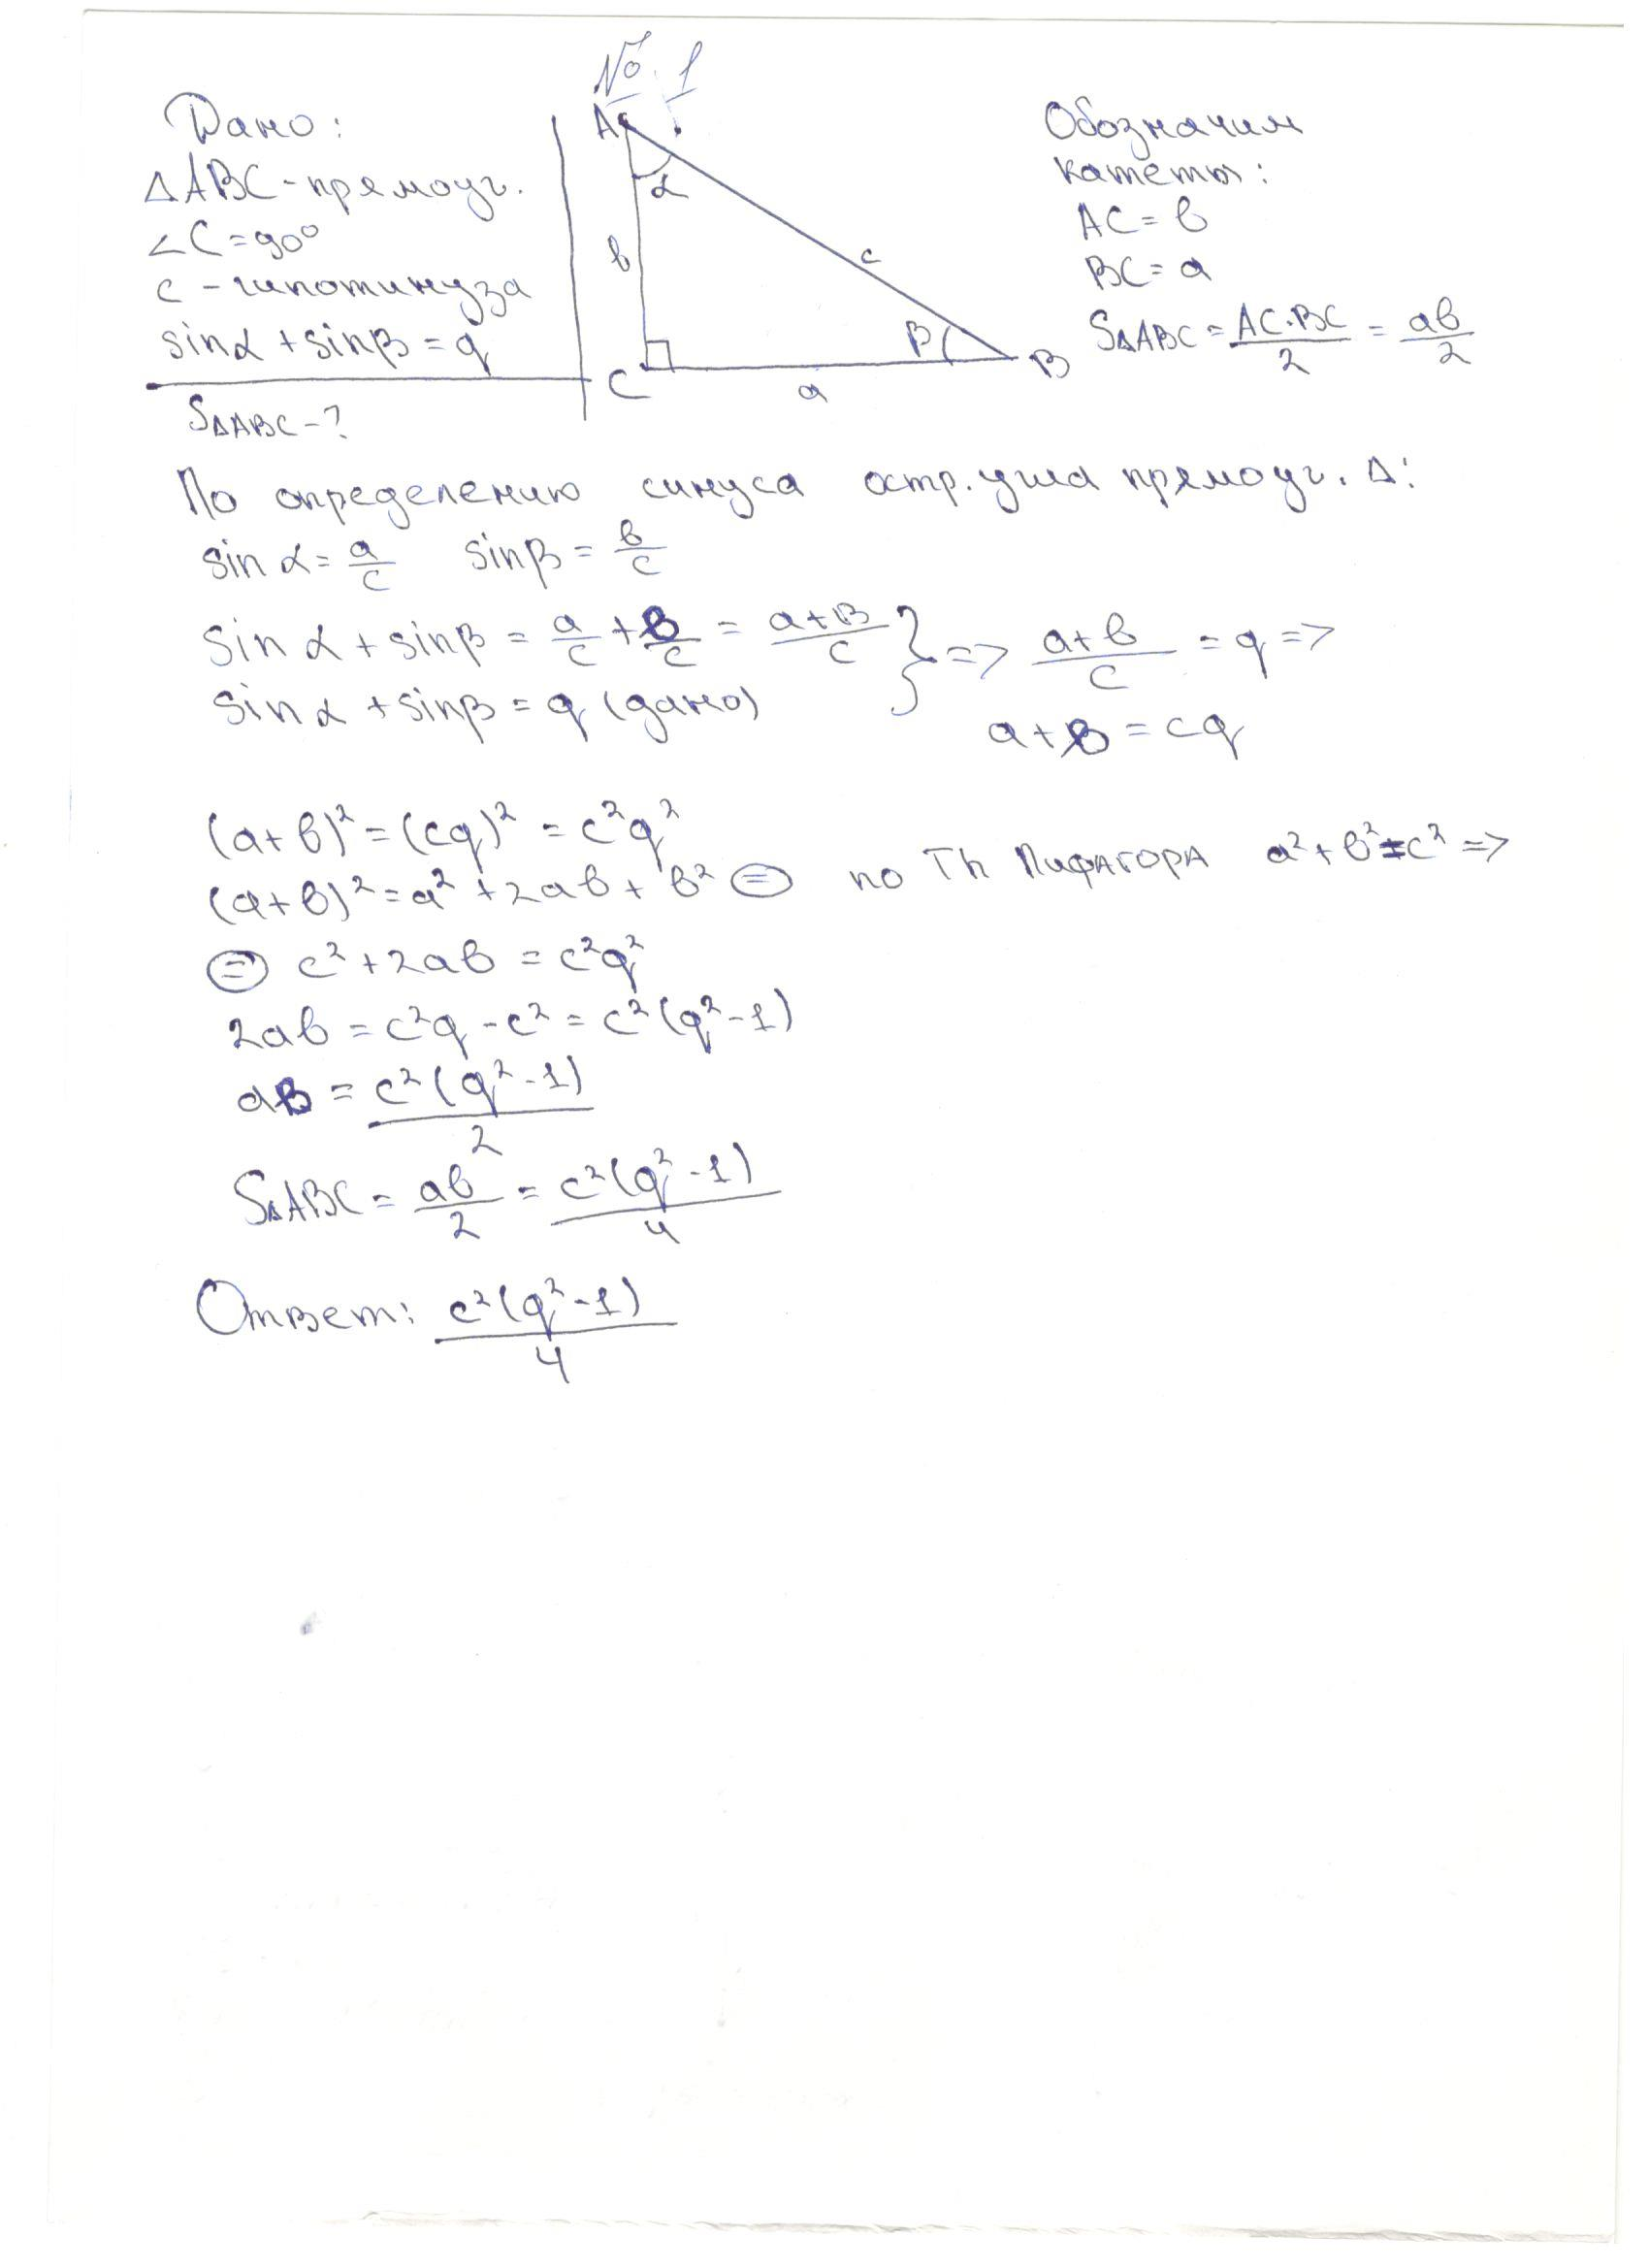 № 1
Дано:
ΔABC - прямоуг.
∠C = 90°
c - гипотинуза
sinα + sinβ = q
SΔABC - ?
A
α
b
c
β
C
a
B
Обозначим
катеты:
AC = b
BC = a
SΔABC = AC·BC/2 = ab/2
По определению синуса остр. угла прямоуг. Δ:
sin α = a/c sinβ = b/c
sin α + sinβ = a/c + b/c = a+b/c } => a+b/c = q =>
sin α + sinβ = q (дано)
a + b = cq
(a+b)² = (cq)² = c²q²
(a+b)² = a² + 2ab + b² ⊜ по Th Пифагора a² + b² = c² =>
⊜ c² + 2ab = c²q²
2ab = c²q - c² = c²(q² - 1)
ab = c²(q² - 1)/2
SΔABC = ab/2 = c²(q² - 1)/4
Ответ: c²(q² - 1)/4